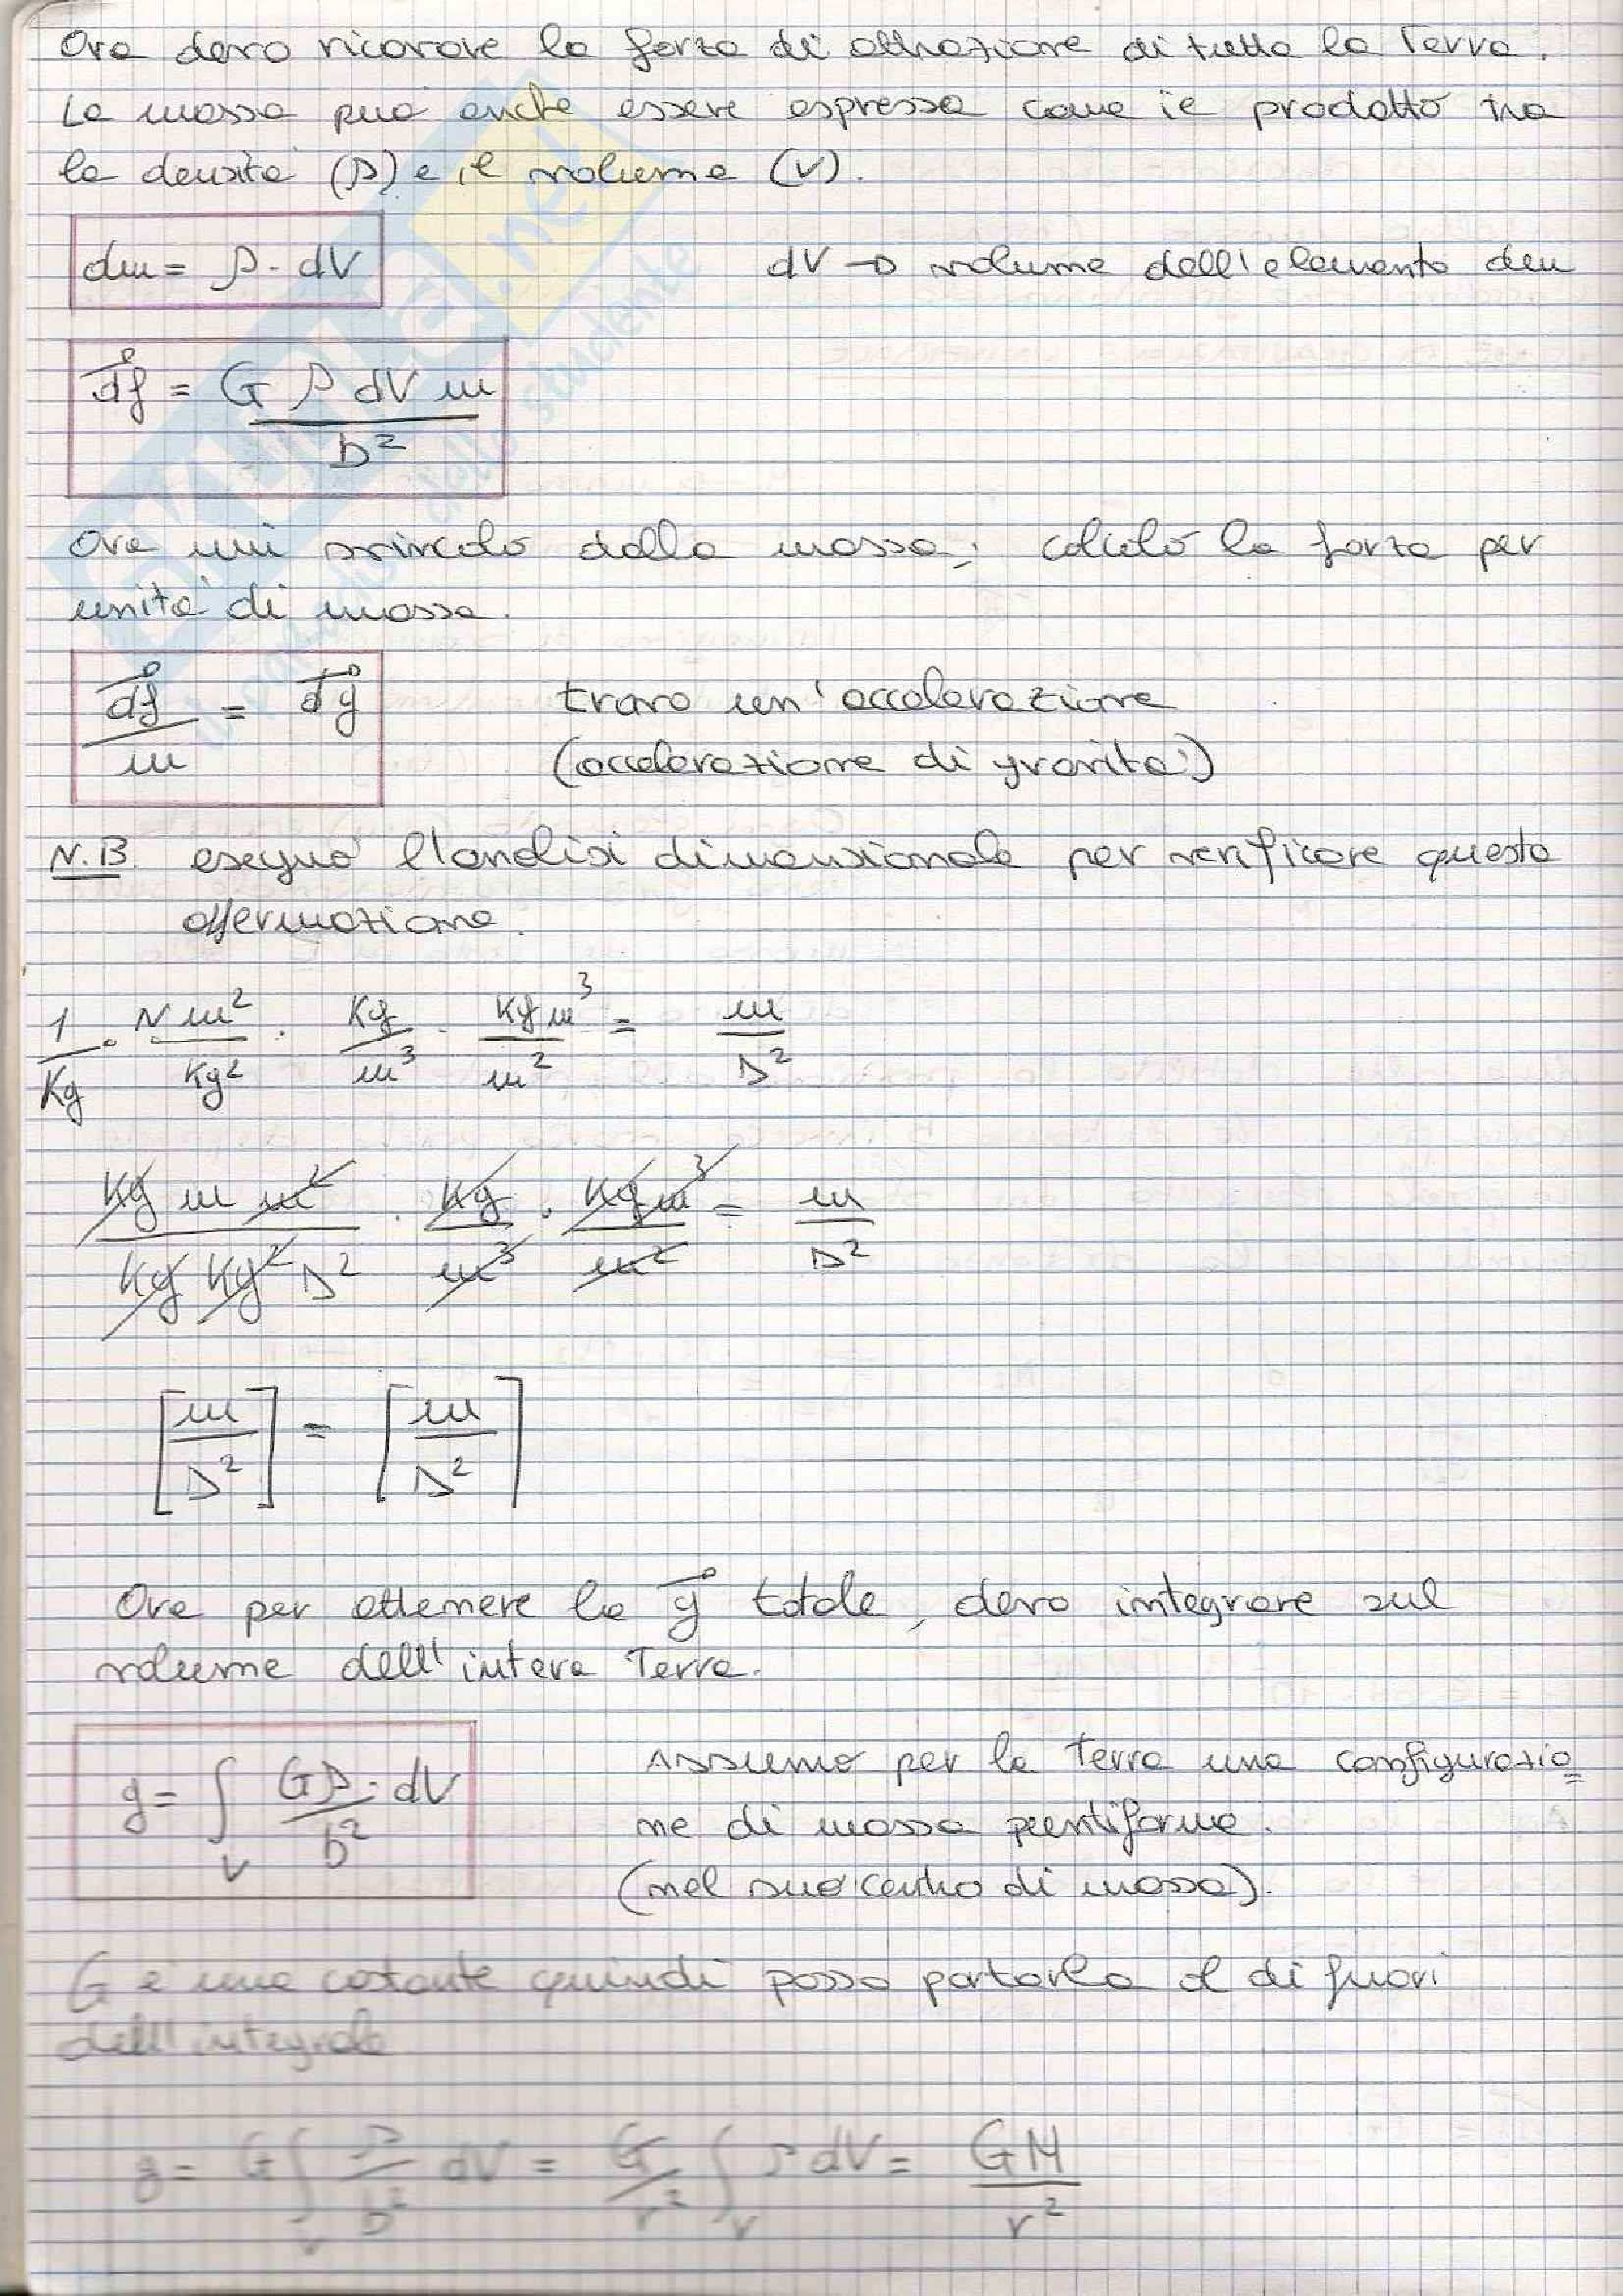 Ora devo ricavare la forza di attrazione di tutta la Terra.
La massa può anche essere espressa come il prodotto tra
la densità (ρ) e il volume (V).
dm = ρ · dV dV → volume dell'elemento dm
df = G ρ dV m / b²
Ora mi svincolo dalla massa; calcolo la forza per
unità di massa.
df / m = dg trovo un'accelerazione
(accelerazione di gravità)
N.B. eseguo l'analisi dimensionale per verificare questa
affermazione.
1/Kg · N m²/Kg² · Kg/m³ · Kg m³/m² = m/s²
Kg m m²/Kg Kg² s² · Kg/m³ · Kg m³/m² = m/s²
[m/s²] = [m/s²]
Ora per ottenere la g totale, devo integrare sul
volume dell'intera Terra.
g = ∫V Gρ/b² · dV
Assumo per la Terra una configurazio=
ne di massa puntiforme.
(nel suo centro di massa).
G è una costante quindi posso portarla al di fuori
dell'integrale
g = G ∫V ρ/b² dV = G/r² ∫V ρ dV = GM/r²
.net
dello studente